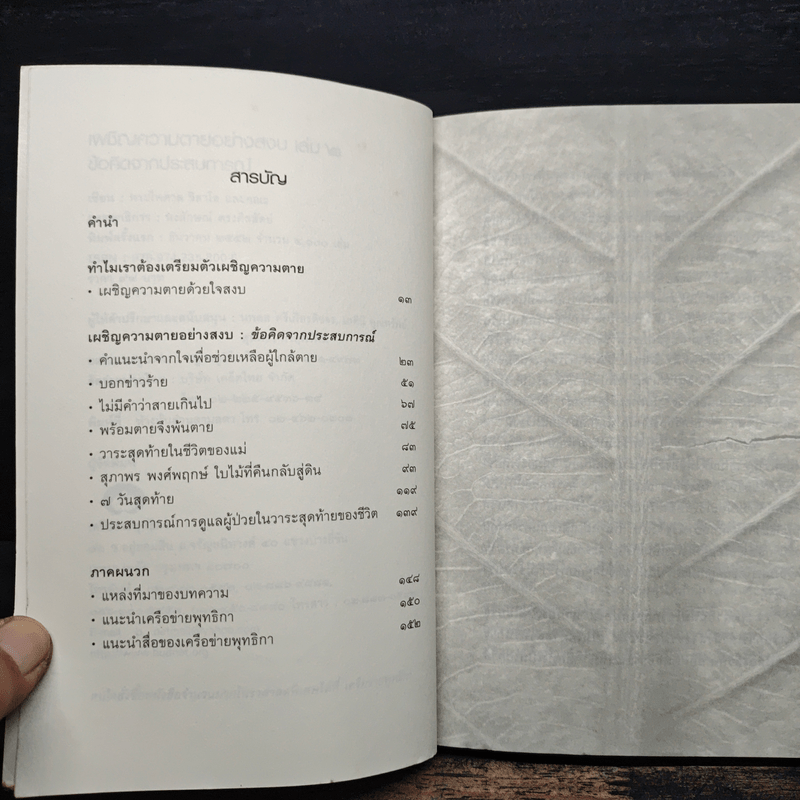 สารบัญ
คำนำ
ทำไมเราต้องเตรียมตัวเผชิญความตาย
• เผชิญความตายด้วยใจสงบ ๑๓
เผชิญความตายอย่างสงบ : ข้อคิดจากประสบการณ์
• คำแนะนำจากใจเพื่อช่วยเหลือผู้ใกล้ตาย ๒๓
• บอกข่าวร้าย ๕๑
• ไม่มีคำว่าสายเกินไป ๖๗
• พร้อมตายจึงพ้นตาย ๗๕
• วาระสุดท้ายในชีวิตของแม่ ๘๓
• สุภาพร พงศ์พฤกษ์ ใบไม้ที่คืนกลับสู่ดิน ๙๓
• ๗ วันสุดท้าย ๑๑๙
• ประสบการณ์การดูแลผู้ป่วยในวาระสุดท้ายของชีวิต ๑๓๙
ภาคผนวก
• แหล่งที่มาของบทความ ๑๔๘
• แนะนำเครือข่ายพุทธิกา ๑๕๐
• แนะนำสื่อของเครือข่ายพุทธิกา ๑๕๒